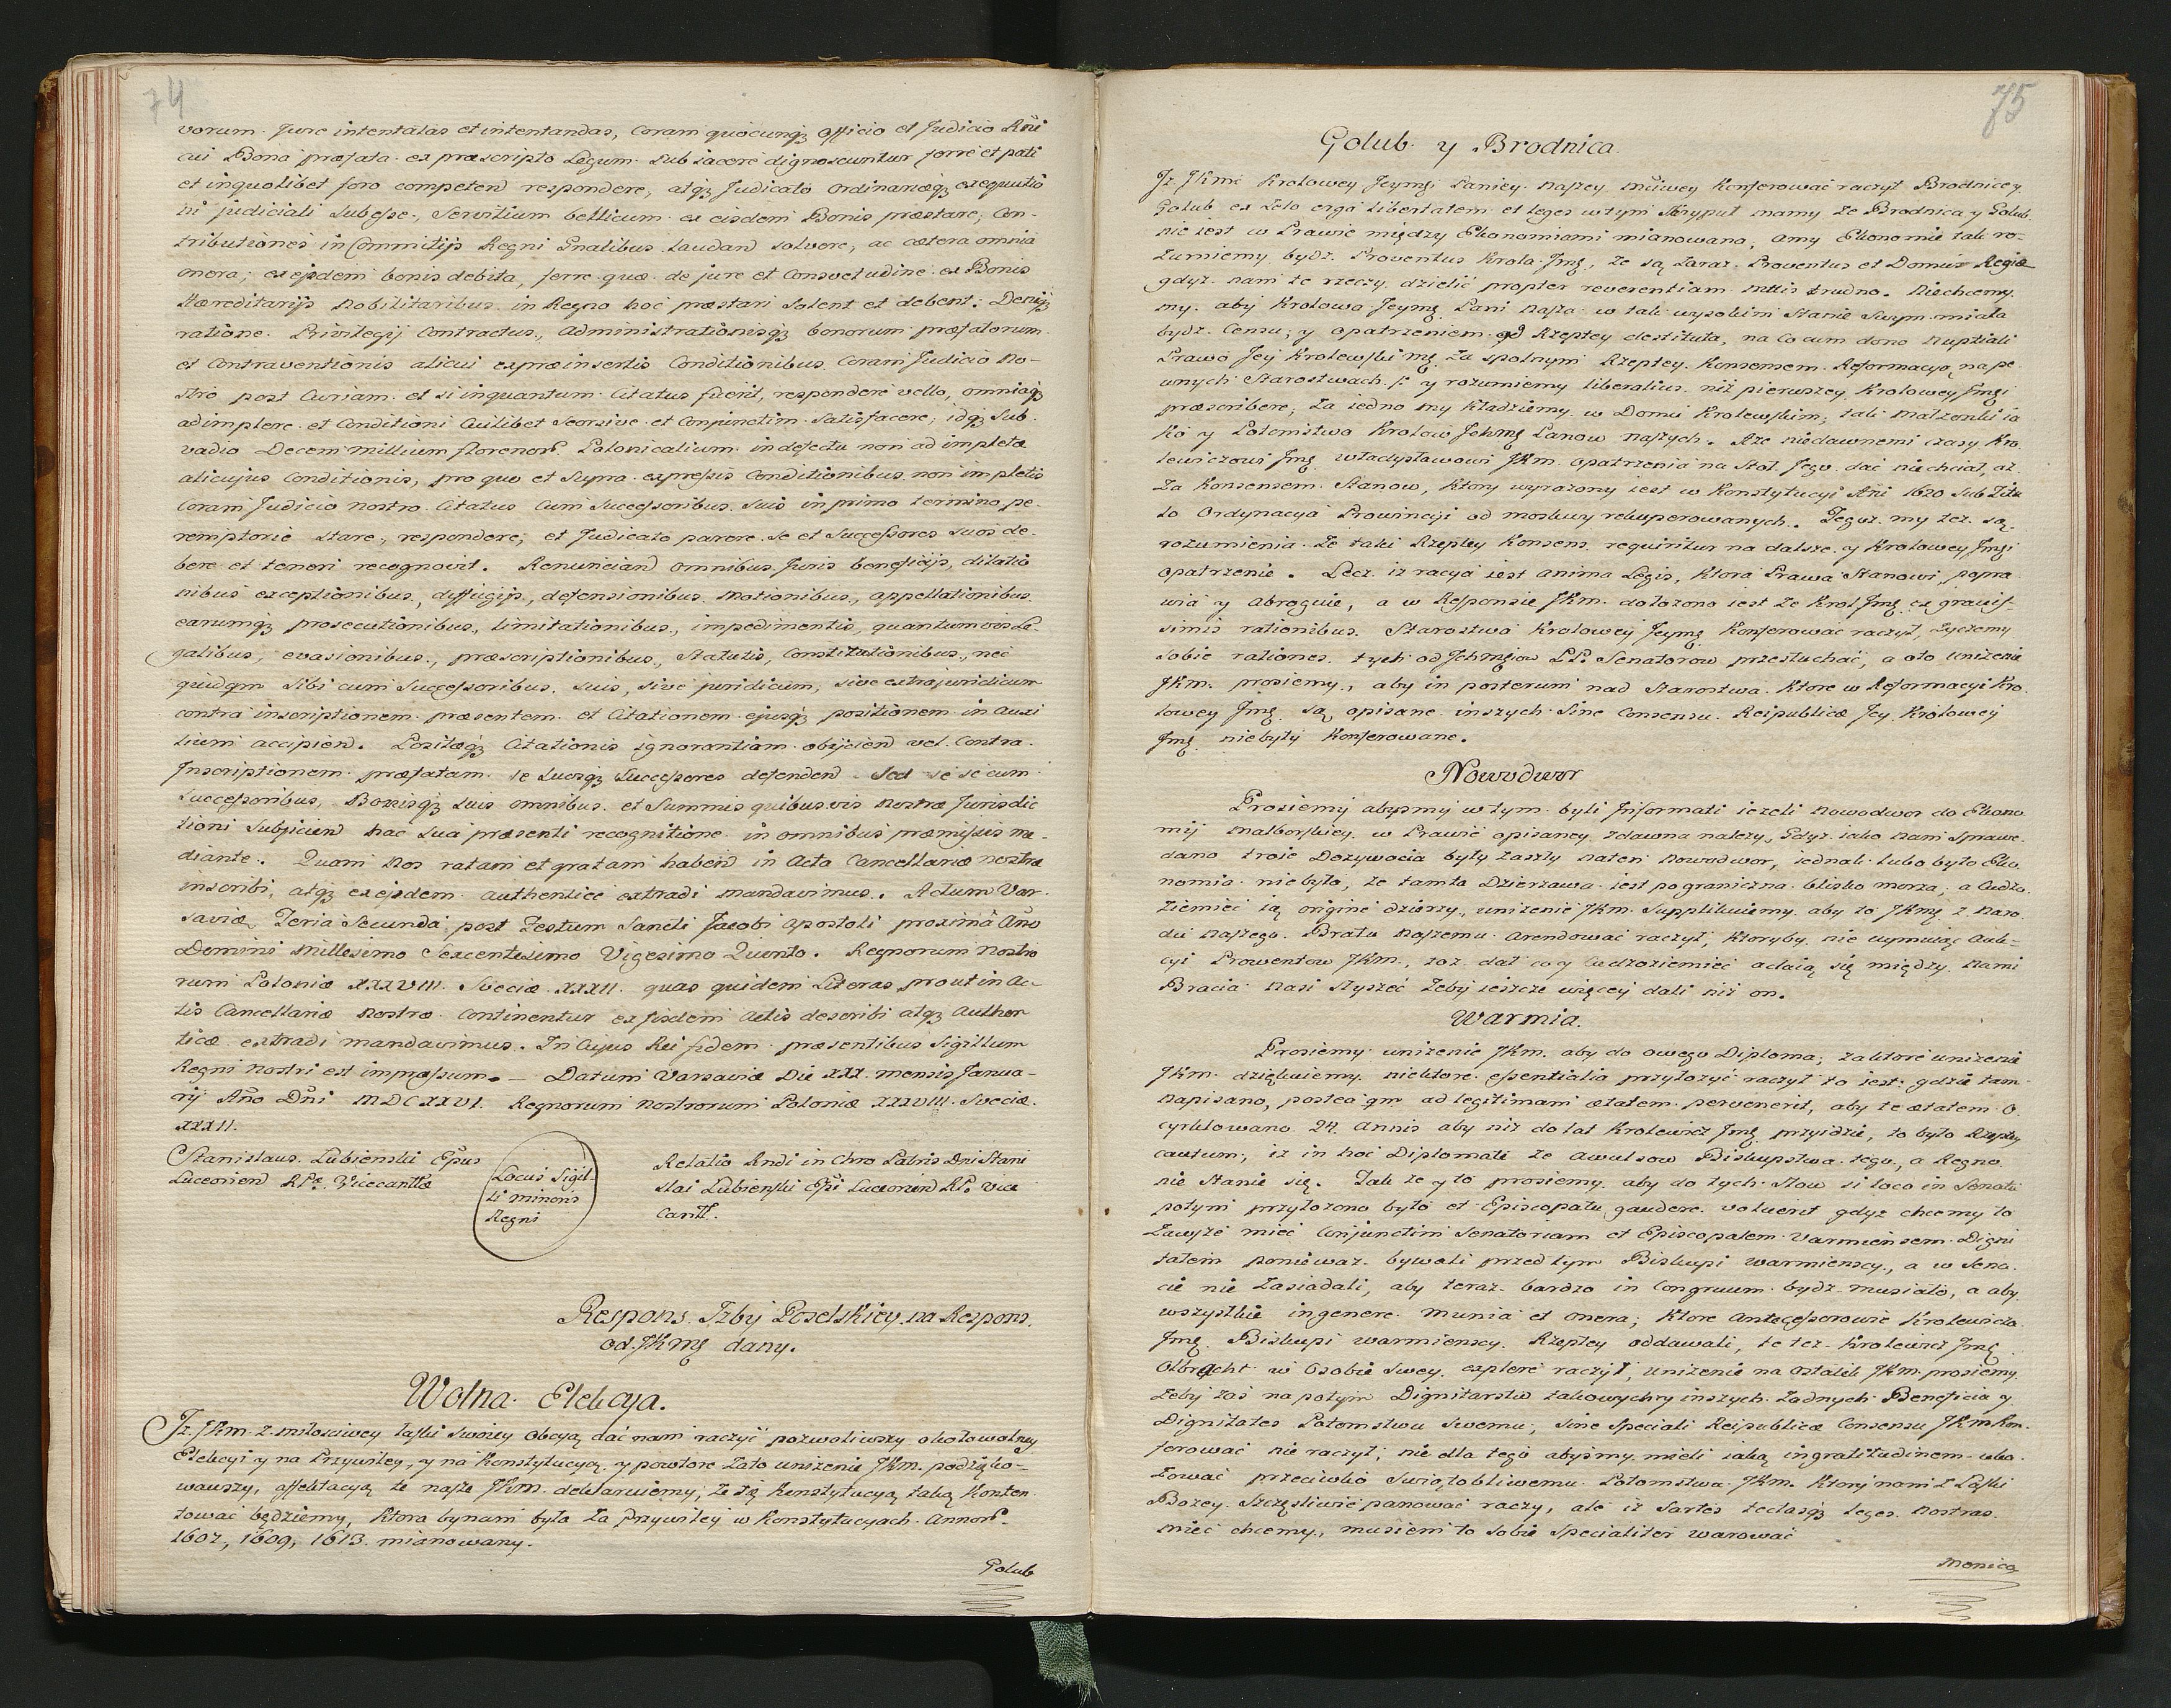 74
vorum Jure intentatas et intentandas, Coram quocunqꝫ officio et Judicio Rñi
cui Bona præfata ex præscripto Legum subiacere dignoscuntur ferre et pati
et in quolibet foro competen̄ respondere, atqꝫ Judicato ordinariæqꝫ exequutio
ni judiciali subesse, Servitium bellicum ex eisdem Bonis præstare, Con-
tributiones in Commitijs Regni Gnalibus laudand solvere, ac cætera omnia
onera, ex ejsdem bonis debita, ferre quæ de jure et Consvetudine ex Bonis
Hæreditarijs Nobilitaribus in Regno hoc præstari solent et debent: Deniqꝫ
ratione Privilegij Contractus, Administrationisqꝫ bonorum præfatorum
et Contraventionis alicui expræinsertis Conditionibus Coram Judicio No-
stro post Curiam et si inquantum Citatus fuerit, respondere vello, omniaqꝫ
adimplere et Conditioni Cuilibet Seorsive et Conjunctim Satisfacere, idqꝫ Sub
vadio Decem millium florenor Polonicalium in defectu non adimpletæ
alicujus Conditionis, pro quo et Supra expressis Conditionibus non impletis
Coram Judicio nostro Citatus Cum Successoribus Suis in primo termino pe-
remptorie stare, respondere, et Judicato parere se et Successores suos de-
bere et teneri recognovit. Renuncian̄d omnibus Juris beneficijs, dilatio
nibus exceptionibus, diffugijs, defensionibus Motionibus, appellationibus
earumqꝫ prosecutionibus, limitationibus, impedimentis, quantumvis Le-
galibus, evasionibus, præscriptionibus, Statutis, Constitutionibus, nec
quidqm sibi cum Successoribus suis, sive juridicum, sive extrajuridicum
contra inscriptionem præsentem et Citationem ejusqꝫ positionem in Auxi
lium accipien̄d. Positæqꝫ Citationis ignorantiam obijcien̄d vel Contra
Inscriptionem præfatam se suosqꝫ Successores defenden̄d Sed se se cum
Successoribus, Bonisqꝫ suis omnibus et Summis quibusvis Nostræ Jurisdic
tioni Subjicien̄d hac sua præsenti recognitione in omnibus præmissis me-
diante. Quam Nos ratam et gratam haben̄d in Acta Cancellariæ nostræ
inscribi, atqꝫ ex ejsdem authentice extradi mandavimus. Actum Var-
saviæ Feria Secunda post Festum Sancti Jacobi Apostoli proxima Año
Domini Millesimo Sexcentesimo Vigesimo Quinto. Regnorum Nostro
rum Poloniæ XXXVIII. Sveciæ XXXII. quas quidem Literas prout in Ac-
tis Cancellariæ Nostræ Continentur ex jisdem Actis describi atqꝫ Authen
ticæ extradi mandavimus. In Cujus Rei fidem præsentibus Sigillum
Regni Nostri est impressum. — Datum Varsaviæ Die XXX. mensis Janua-
rij Año Dñi MDCXXVI. Regnorum Nostrorum Poloniæ XXXVIII. Sveciæ
XXXII.
Stanislaus Lubienski Epus
Luceorien̄ RPæ Vicecantlæ
Locus Sigil-
li minoris
Regni
Relatio Rndi in Chro Patris Dni Stani
slai Lubienski Epi Luceorien̄ RP. Vice
Cantl.
Respons Izby Poselskiey na Respons
od JKmę dany.
Wolna Elekcya.
Iz JKm. z miłosciwey łaski swoiey obcyą dać nam raczyć pozwoliwszy około wolney
Elekcyi y na Przywiley, y na Konstytucyą, y powtore zato uniżenie JKm. podzięko-
wawszy, affektacyą te nasze JKm. deklaruiemy, że tią Konstytucyą taką Konten
tować będziemy, Ktora bynam była za Przywiley w Konstytucyach Annor.
1607, 1609, 1613. mianowany.
Golub
75
Golub y Brodnica
Iz JKmć Krolowey Jeymsi Paniey naszey mciwey Konferować raczył Brodnice y
Golub ex zelo erga libertatem et leges w tym Skrypuł mamy że Brodnica y Golub
nie iest w Prawie między Ekonomiami mianowana, Amy Ekonomie tak ro-
zumiemy bydz Proventus Krola Jmę, że są zaraz Proventus et Domus Regiæ
gdyz nam te rzeczy dzielić propter reverentiam Mttis trudno. Niechcemy
my aby Krolowa Jeymę Pani nasza w tak wysokim Stanie swym miała
bydz Censu, y opatrzeniem od Rzeptey destituta, na Co cum dono nuptiali
Prawo Jey Krolewski mę za spolnym Rzeptey Konsensem Reformacyą na pe
wnych Starostwach y rozumiemy liberalius niż pierwszey Krolowey Jmęi
præscribere, za iedno my Kładziemy w Domu Krolewskim, tak małzonki ia
ko y Potomstwo Krolow Ichmę Panow naszych. Aże niedawnemi czasy Kro
lewiczowi Jmę Władysławowi JKm. opatrzenia na Stoł Jego dać niechciał, aż
za Konsensem Stanow, Ktory wyrażony iest w Konstytucyi Ani 1620 sub Titu
lo Ordynacya Prowincyi od moskwy rekuperowanych. Tegoz my tez są
rozumienia że taki Rzeptey Konsens requiritur na dalsze y Krolowey Jmęi
opatrzenie. Lecz iz racya iest anima Legis, Ktora Prawa Stanowi, popra
wia y Abroguie, a w Responsie JKm. dołożono iest że Krol Jmę ex gravis-
simis rationibus Starostwa Krolowey Jeymę Konferować raczył, życzemy
sobie rationes tych od Ichmęiow PP. Senatorow przesłuchać, a oto uniżenie
JKm. prosiemy, aby in posterum nad Starostwa Ktore w Reformacyi Kro
lowey Jmę są opisane inszych Sine Consensu Reipublicæ Jey Krolowey
Jmę niebyły Konferowane.
Nowodwor
Prosiemy abysmy w tym byli Informati ieżeli Nowodwor do Ekono
mij Malborskiey w Prawie opisaney zdawna należy, Gdyz iako nam sprawe
dano troie Dożywocia były zaszły naten Nowodwor, iednak lubo było Eko
nomia niebyło, że tamta Dzierżawa iest pograniczna blisko morza, a Cudzo
Ziemiec ią origine dzierzy, uniżenie JKm. supplikuiemy aby to JKmę z Naro
du Naszego Bratu naszemu arendować raczył, Ktoryby nie uymuiąc Auk-
cyi Prowentow JKm., toz dał co y Cudzoziemiec adaią się między nami
Bracia nasi słyszeć żeby ieszcze więcey dali niż on.
Warmia.
Prosiemy uniżenie JKm. aby do owego Diploma, zaktore uniżenie
JKm. dziękuiemy niektore essentialia przyłożyć raczył to iest: gdzie tam
napisano, postea qm ad legitimam ætatem pervenerit, aby te ætatem o
cyrklowano 24. Annis aby niż do lat Krolewicz Jmę przyidzie, to było Rzeptey
cautum, iz in hoc Diplomate że Awulsow Biskupstwa tego, a Regno
nie stanie się. Tak że y to prosiemy aby do tych słow si loco in Senatu
potym przyłożono było et Episcopatu gaudere voluerit gdyz chcemy to
zawsze mieć Conjunctim Senatoriam et Episcopalem Varmiensem Digni
tatem poniewaz bywali przed tym Biskupi Warmienscy, a w Sena
cie nie zasiadali, aby teraz bardzo in Congruum bydz musiało, a aby
wszystkie in genere munia et onera, Ktore Antecessorowie Krolewicza
Jmę Biskupi Warmienscy Rzeptey oddawali, te tez Krolewicz Jmę
Olbracht w Osobie swey explere raczył, uniżenie na ostatek JKm. prosiemy
żeby zas na potym Dignitarstw takowych y inszych żadnych Beneficia y
Dignitates Potomstwu swemu, sine Speciali Reipublicæ Consensu JKm Kon
ferować nie raczył, nie dla tego abysmy mieli iaką ingratitudinem uka
zować przeciwko swiątobliwemu Potomstwu JKm. Ktory nam z Łaski
Bozey Szczęsliwie panować raczy, ale iz Sartes tectasqꝫ leges nostras
mieć chcemy, musiem to sobie specialiter warować
Monica